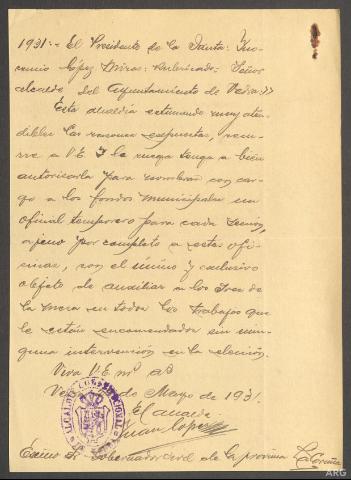 1931:- El Presidente de la Junta: Ino-
cencio López Miras: Rubricado: Señor
alcalde del Ayuntamiento de Vedra:»
Esta alcaldía estimando muy aten-
dibles las razones expuestas, recu-
rre a V.E. y le ruega tenga a bien
autorizarla para nombrar con car-
go a los fondos municipales un
oficial temporero para cada Sección,
ajeno por completo a estas ofi-
cinas, con el único y exclusivo
objeto de auxiliar a los Sres de
la mesa en todos los trabajos que
le están encomendados sin nin-
guna intervención en la elección.
Viva V.E. m. a.
de Mayo de 1931
El alcalde
Juan López
ALCALDIA CONSTITUCIONAL
Excmo Sr Gobernador civil de la provincia La Coruña
ARG